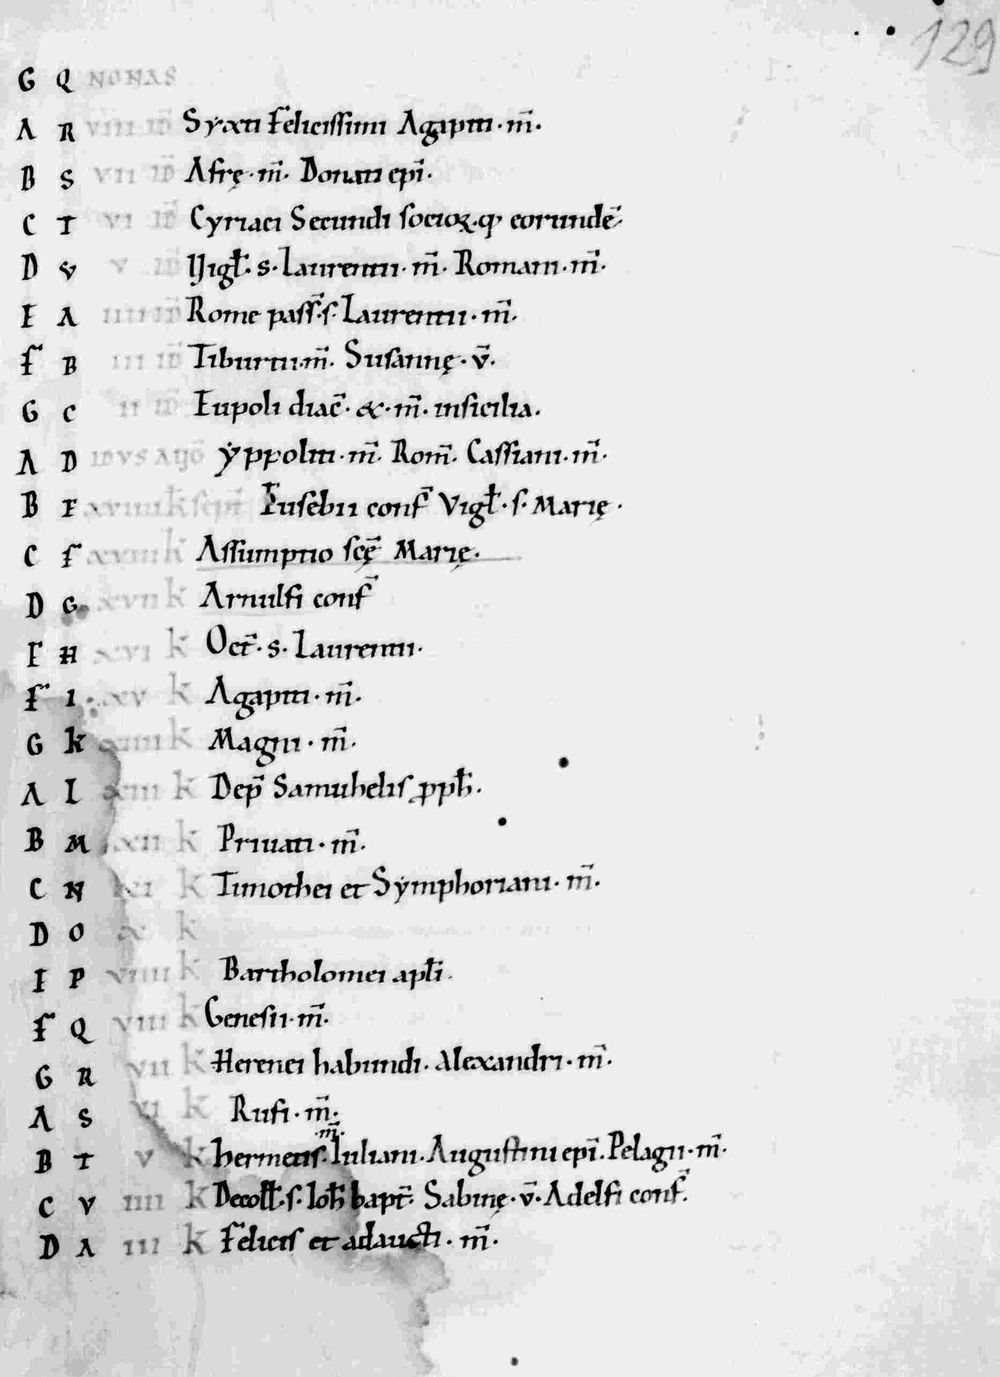 129
G Q NONAS
A R VIII ID̄ Syxti Felicissimi Agapiti · m̄.
B S VII ID̄ Afrę · m̄. Donati ep̄i.
C T VI ID̄ Cyriaci Secundi socioꝝ. q̇ eorundē.
D V V ID̄ Vigł. s. Laurentii · m̄. Romani · m̄.
E A IIII ID̄ Rome pass̄. s. Laurentii · m̄.
F B III ID̄ Tiburtii. m̄. Susannę · v̄.
G C II ID̄ Eupoli diac̄. & · m̄. insicilia.
A D IDVS AUG̅ ẏppoliti · m̄. Rom̄. Cassiani. m̄.
B E XVIIII k sept̄ Eusebii conf̄ Vigł. s. Marię.
C F XVIII k Assumptio scę̄ Marię.
D G XVII k Arnulfi conf̄
E H XVI k Oct̄. s. Laurentii.
F I XV k Agapiti · m̄.
G k XIIII k Magni · m̄.
A L XIII k Dep̄ Samuhelis ꝓph̄.
B M XII k Priuati · m̄.
C N XI k Timothei et Sẏmphoriani · m̄.
D O X k
E P VIIII k Bartholomei apłi.
F Q VIII k Genesii · m̄.
G R VII k Herenei habundi. Alexandri · m̄.
A S VI k Rufi · m̄.
B T V k hermetis. m̄. Iuliani. Augustini ep̄i. Pelagii · m̄.
C V IIII k Decołł. s. Ioh̄ bapt̄. Sabinę · v̄. Adelfi conf̄.
D A III k Felicis et adaucti · m̄.